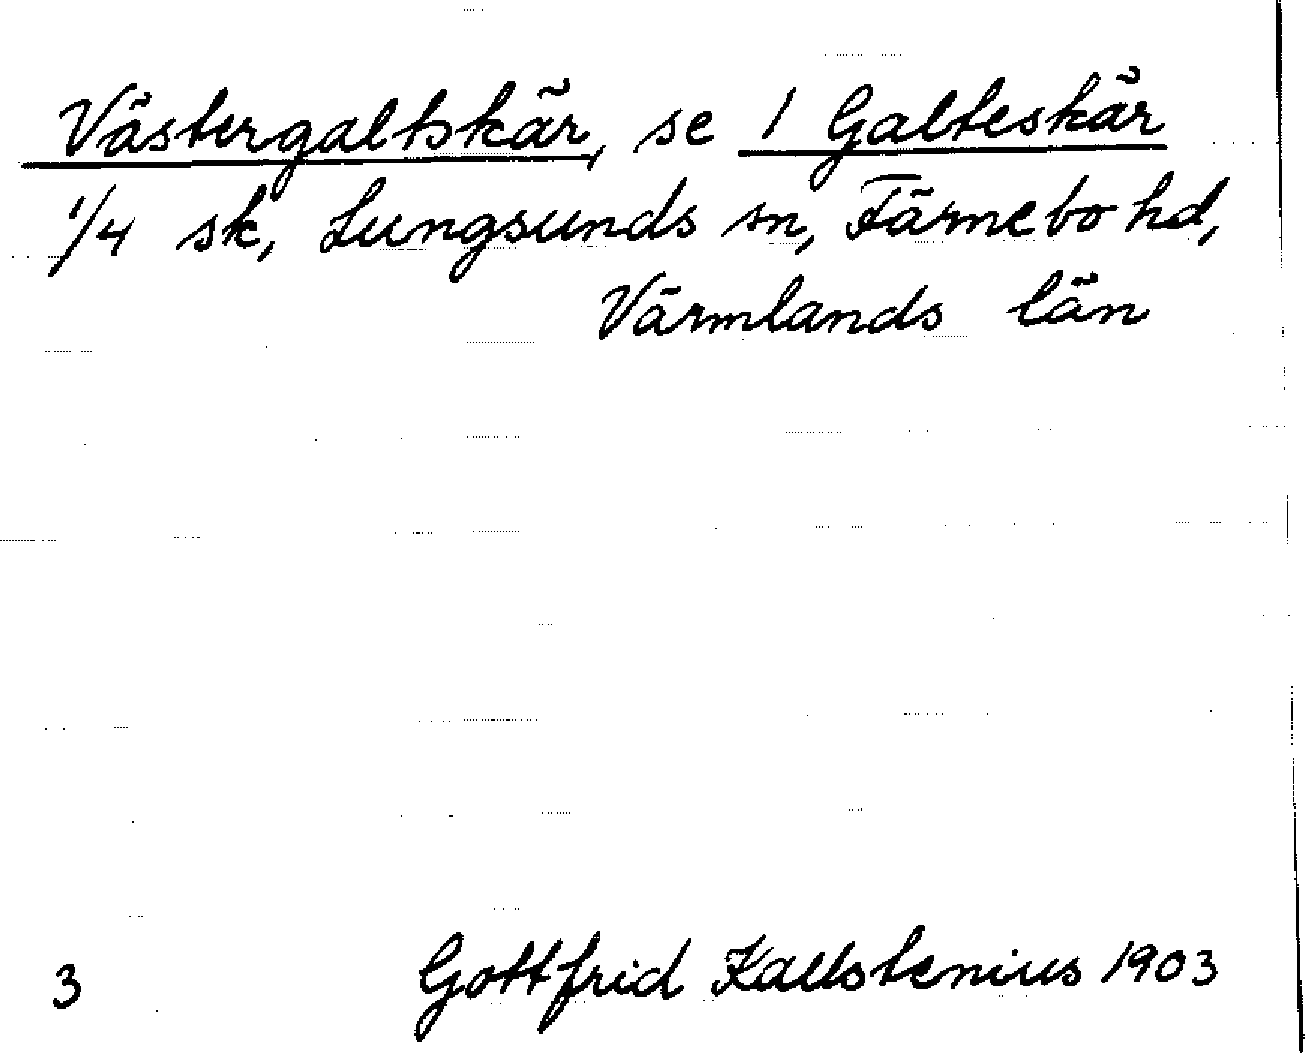 Västergaltskär, se 1 Galteskär
1/4 sk, Lungsunds sn, Färnebo hd,
Värmlands län
3 Gottfrid Kallstenius 1903